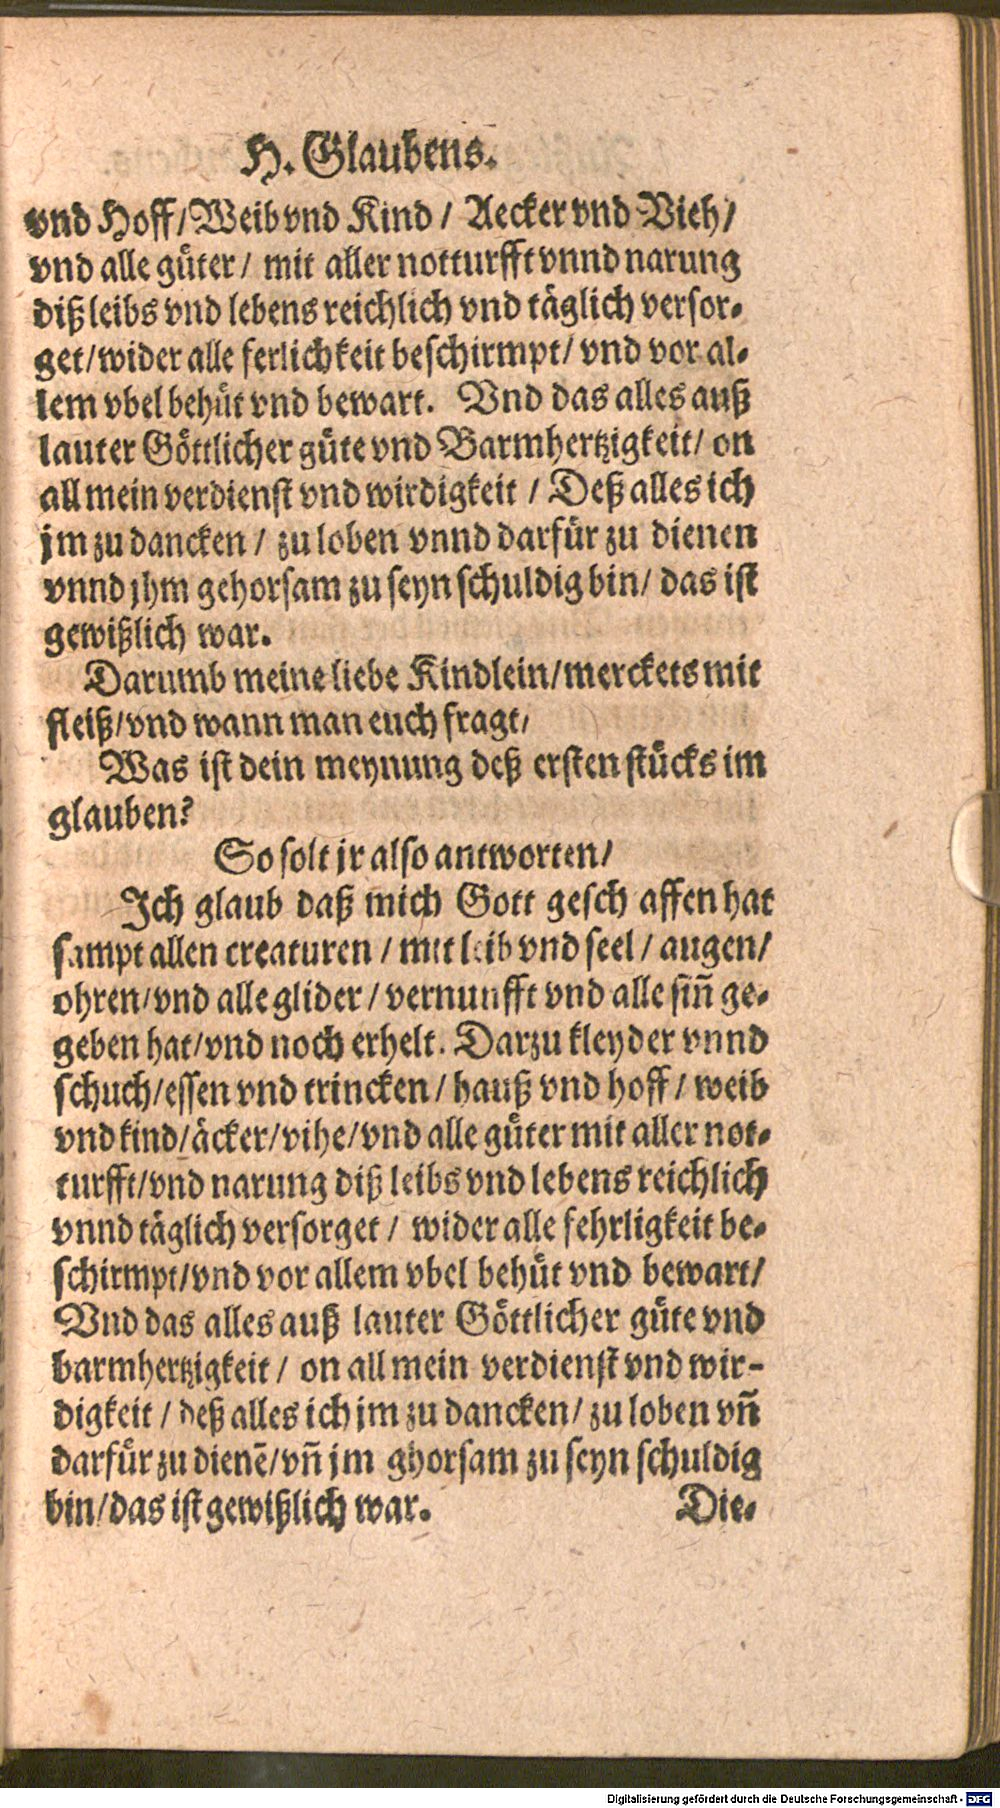 H. Glaubens.
vnd Hoff/ Weib vnd Kind / Aecker vnd Vieh/
vnd alle güter / mit aller notturfft vnnd narung
diß leibs vnd lebens reichlich vnd täglich versor-
get/ wider alle ferlichkeit beschirmpt/ vnd vor al-
lem vbel behüt vnd bewart. Vnd das alles auß
lauter Göttlicher güte vnd Barmhertzigkeit/ on
all mein verdienst vnd wirdigkeit / Deß alles ich
jm zu dancken / zu loben vnnd darfür zu dienen
vnnd jhm gehorsam zu seyn schuldig bin/ das ist
gewißlich war.
Darumb meine liebe Kindlein/ merckets mit
fleiß/ vnd wann man euch fragt/
Was ist dein meynung deß ersten stücks im
glauben?
So solt jr also antworten/
Ich glaub daß mich Gott gesch affen hat
sampt allen creaturen / mit leib vnd seel / augen/
ohren/ vnd alle glider / vernunfft vnd alle sin̄ ge-
geben hat/ vnd noch erhelt. Darzu kleyder vnnd
schuch/ essen vnd trincken / hauß vnd hoff / weib
vnd kind/ äcker/ vihe/ vnd alle güter mit aller not-
turfft/ vnd narung diß leibs vnd lebens reichlich
vnnd täglich versorget / wider alle fehrligkeit be-
schirmpt/ vnd vor allem vbel behüt vnd bewart/
Vnd das alles auß lauter Göttlicher güte vnd
barmhertzigkeit / on all mein verdienst vnd wir-
digkeit / deß alles ich jm zu dancken/ zu loben vn̄
darfür zu dienē/ vn̄ jm ghorsam zu seyn schuldig
bin/ das ist gewißlich war. Die-
Digitalisierung gefördert durch die Deutsche Forschungsgemeinschaft - DFG